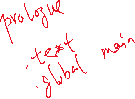 prologue
.text
.global main